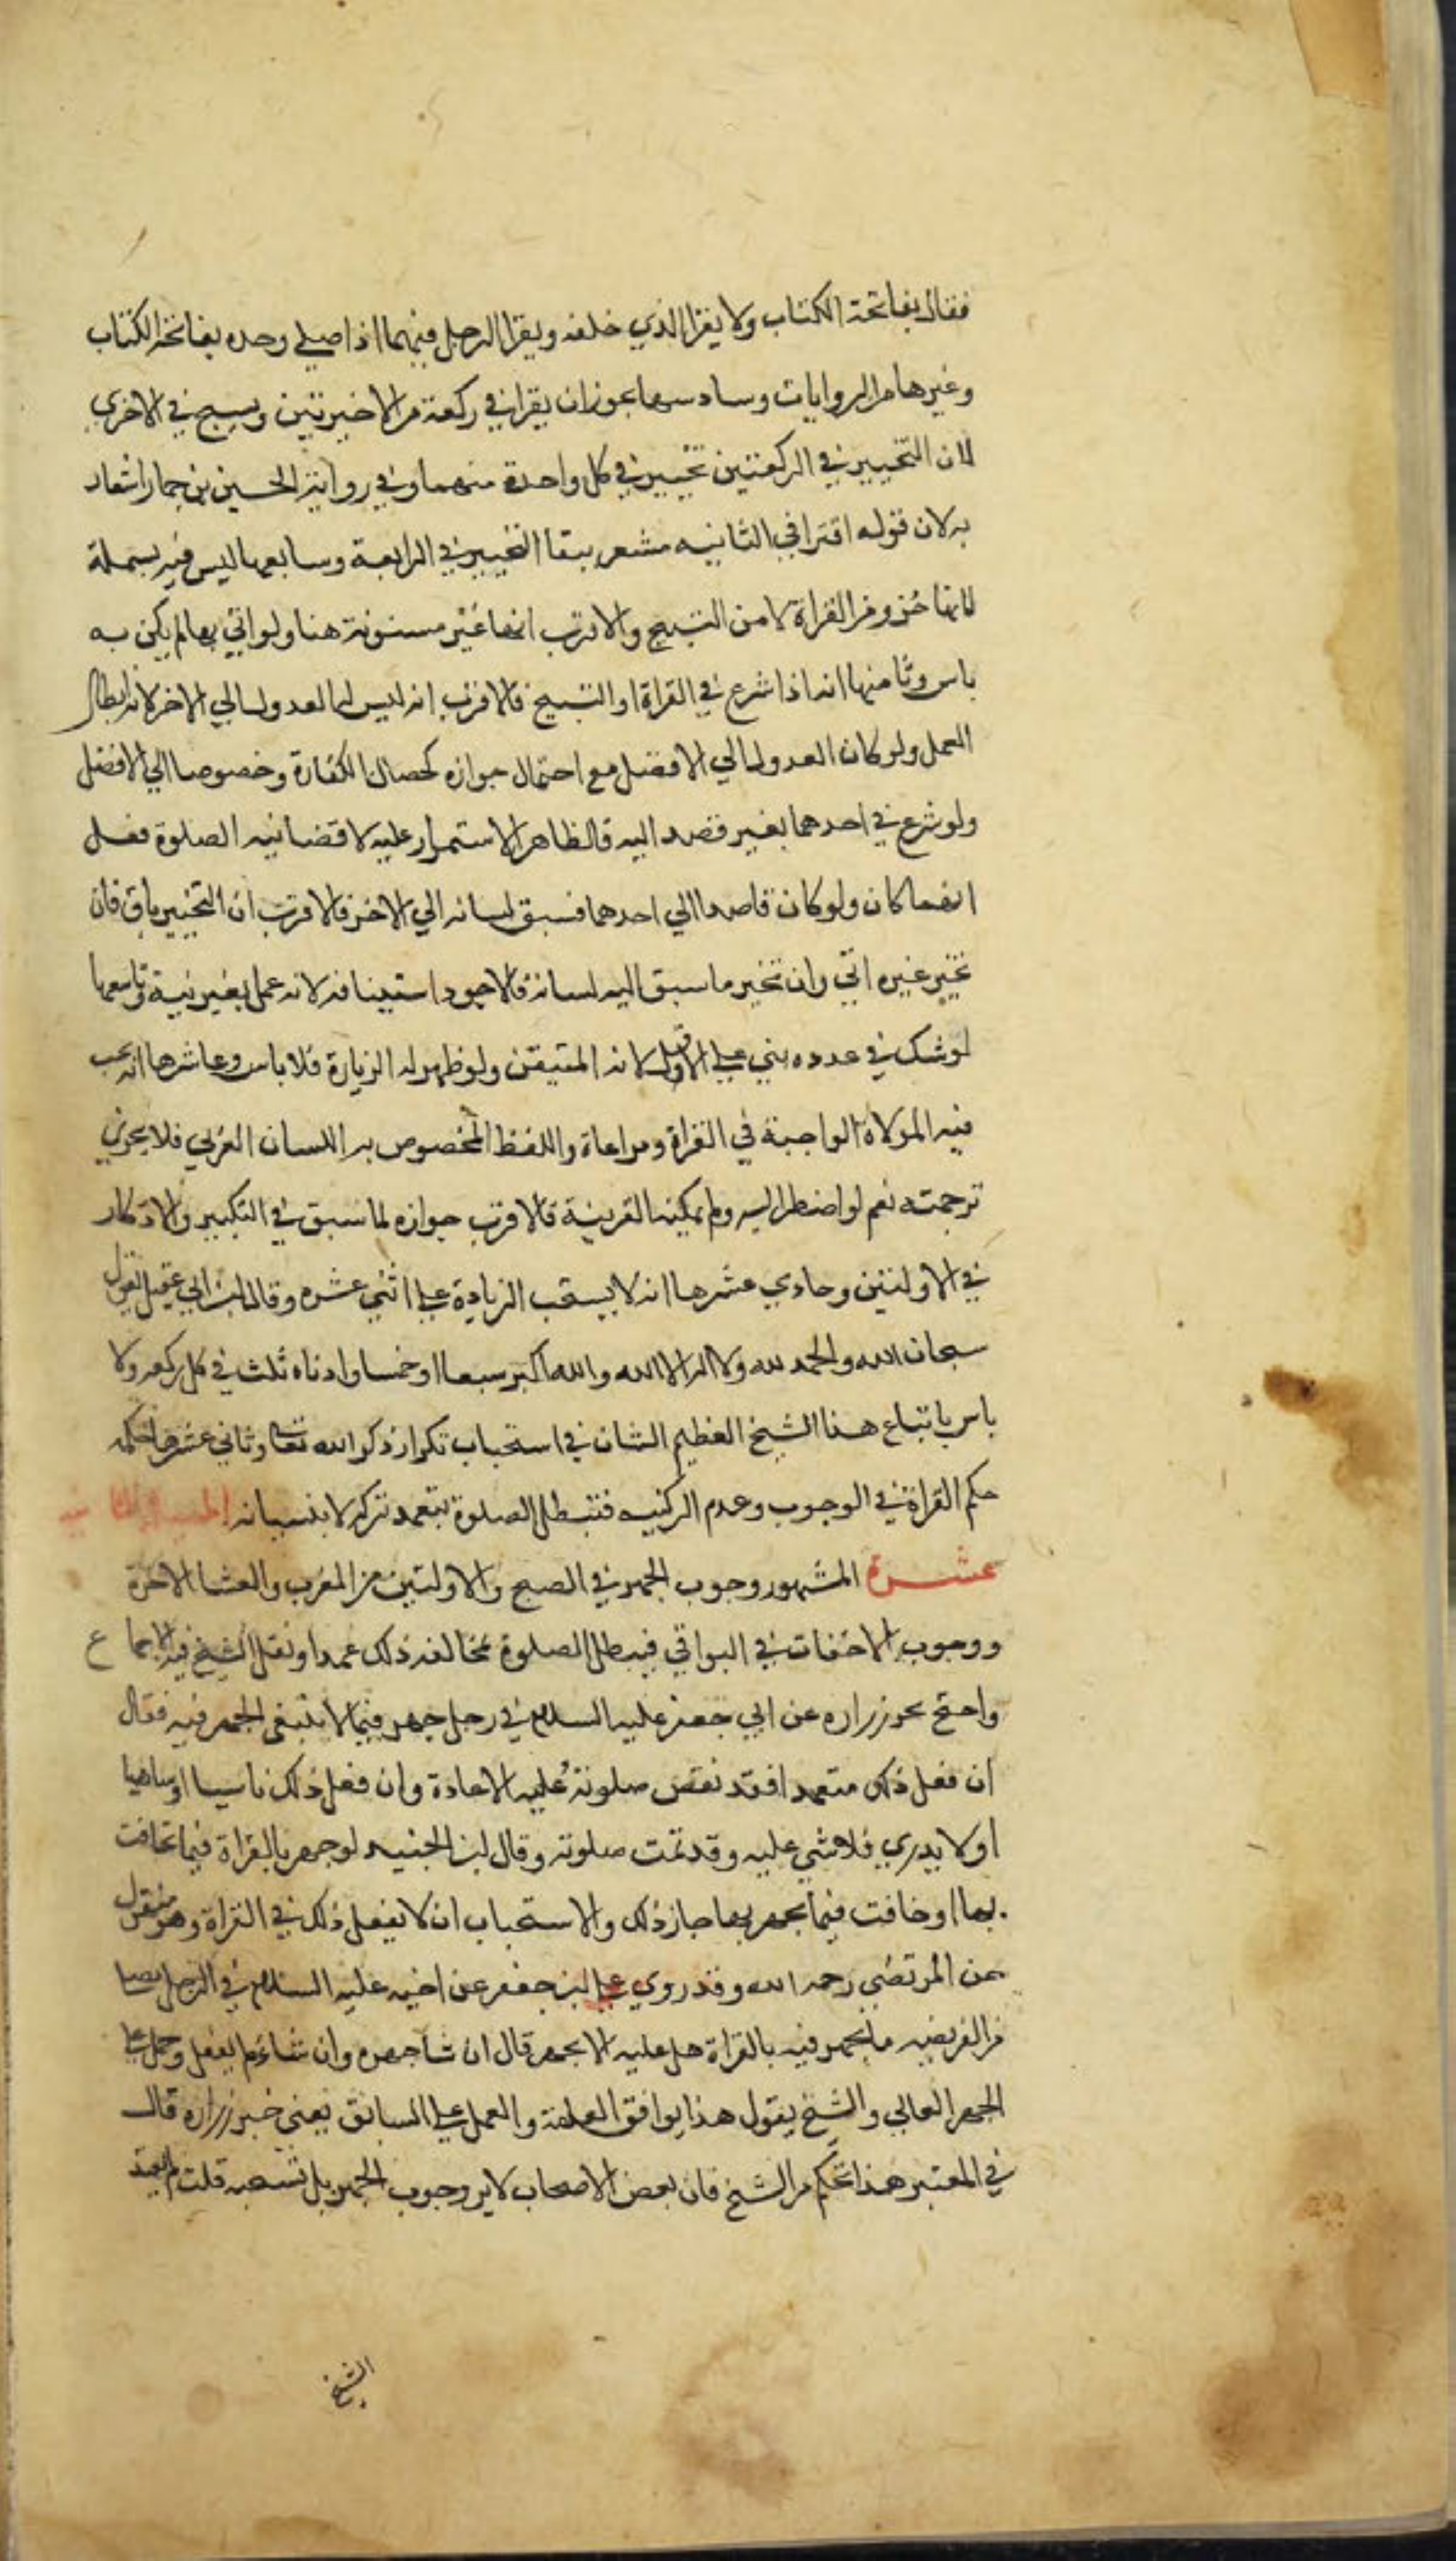 فقال بفاتحة الكتاب ولا يقرا الذي خلفه ويقرا الرجل فيهما اذا صلى وحده بفاتحة الكتاب
وغيرها من الروايات وسادسها يجوز ان يقرا في ركعة من الاخيرتين ويسبح في الاخرى
لان التخيير في الركعتين تخيير في كل واحدة منهما وفي رواية الحسين بن حماد اشعار
به لان قوله اقترا في الثانيه مشعر ببقا التخيير في الرابعة وسابعها ليس فيه بسملة
لانها جزو من القراة لا من التسبيح والاقرب انها غير مسنونة هنا ولو اتي بها لم يكن به
باس وثامنها انه اذا شرع في القراة او التسبيح فالاقرب انه ليس له العدول الي الاخر لانه ابطال
العمل ولو كان العدول الي الافضل مع احتمال جوازه كخصال الكفارة وخصوصا الي الافضل
ولو شرع في احدهما بغير قصد اليه فالظاهر الاستمرار عليه لاقتضا نيه الصلوة فعل
ايهما كان ولو كان قاصدا الي احدهما فسبق لسانه الي الاخر فالاقرب ان التخيير باق فان
تخير غيره اتي وان تخير ما سبق اليه لسانه فالاجود استينافه لانه عمل بغير نية وتاسعها
لو شك في عدده بني علي الاقل لانه المتيقن ولو ظهر له الزيادة فلا باس وعاشرها انه يجب
فيه الموالاة الواجبة في القراة ومراعاة واللفظ المخصوص به اللسان العربي فلا يجزي
ترجمته نعم لو اضطر اليه ولم يمكنه العربية فالاقرب جوازه لما سبق في التكبير والاذكار
في الاولتين وحادي عشرها انه لا يستحب الزيادة علي اثني عشره وقال ابن ابي عقيل يقول
سبحان الله والحمد لله ولا اله الا الله والله اكبر سبعا او خمسا وادناه ثلث في كل ركعه ولا
باس باتباع هذا الشيخ العظيم الشان في استحباب تكرار ذكر الله تعالى وثاني عشرها حكمه
حكم القراة في الوجوب وعدم الركنيه فتبطل الصلوة بتعمد تركه لا بنسيانه المسالة الثانيه
عشرة المشهور وجوب الجهر في الصبح والاولتين من المغرب والعشا الاخرة
ووجوب الاخفات في البواقي فيبطل الصلوة مخالفة ذلك عمدا ونقل الشيخ فيه الاجماع
واحتج بخبر زراره عن ابي جعفر عليه السلام في رجل جهر فيما لا ينبغي الجهر فيه فقال
ان فعل ذلك متعمدا فقد نقض صلوته عليه الاعادة وان فعل ذلك ناسيا او ساهيا
او لا يدري فلا شي عليه وقد تمت صلوته وقال ابن الجنيد لو جهر بالقراة فيما تخافت
بها او خافت فيما يجهر بها جاز ذلك والاستحباب ان لا يفعل ذلك في القراة وهو منقول
عن المرتضي رحمه الله وقد روي علي ابن جعفر عن اخيه عليه السلام في الرجل يصلي
من الفريضه ما يجهر فيه بالقراة هل عليه الا يجهر قال ان شا جهر وان شا لم يفعل وحمل علي
الجهر العالي والشيخ يقول هذا يوافق العامة والعمل علي السابق يعني خبر زراره قال
في المعتبر هذا تحكم من الشيخ فان بعض الاصحاب لا ير وجوب الجهر بل نستحبه قلت لم يعتد
الشيخ